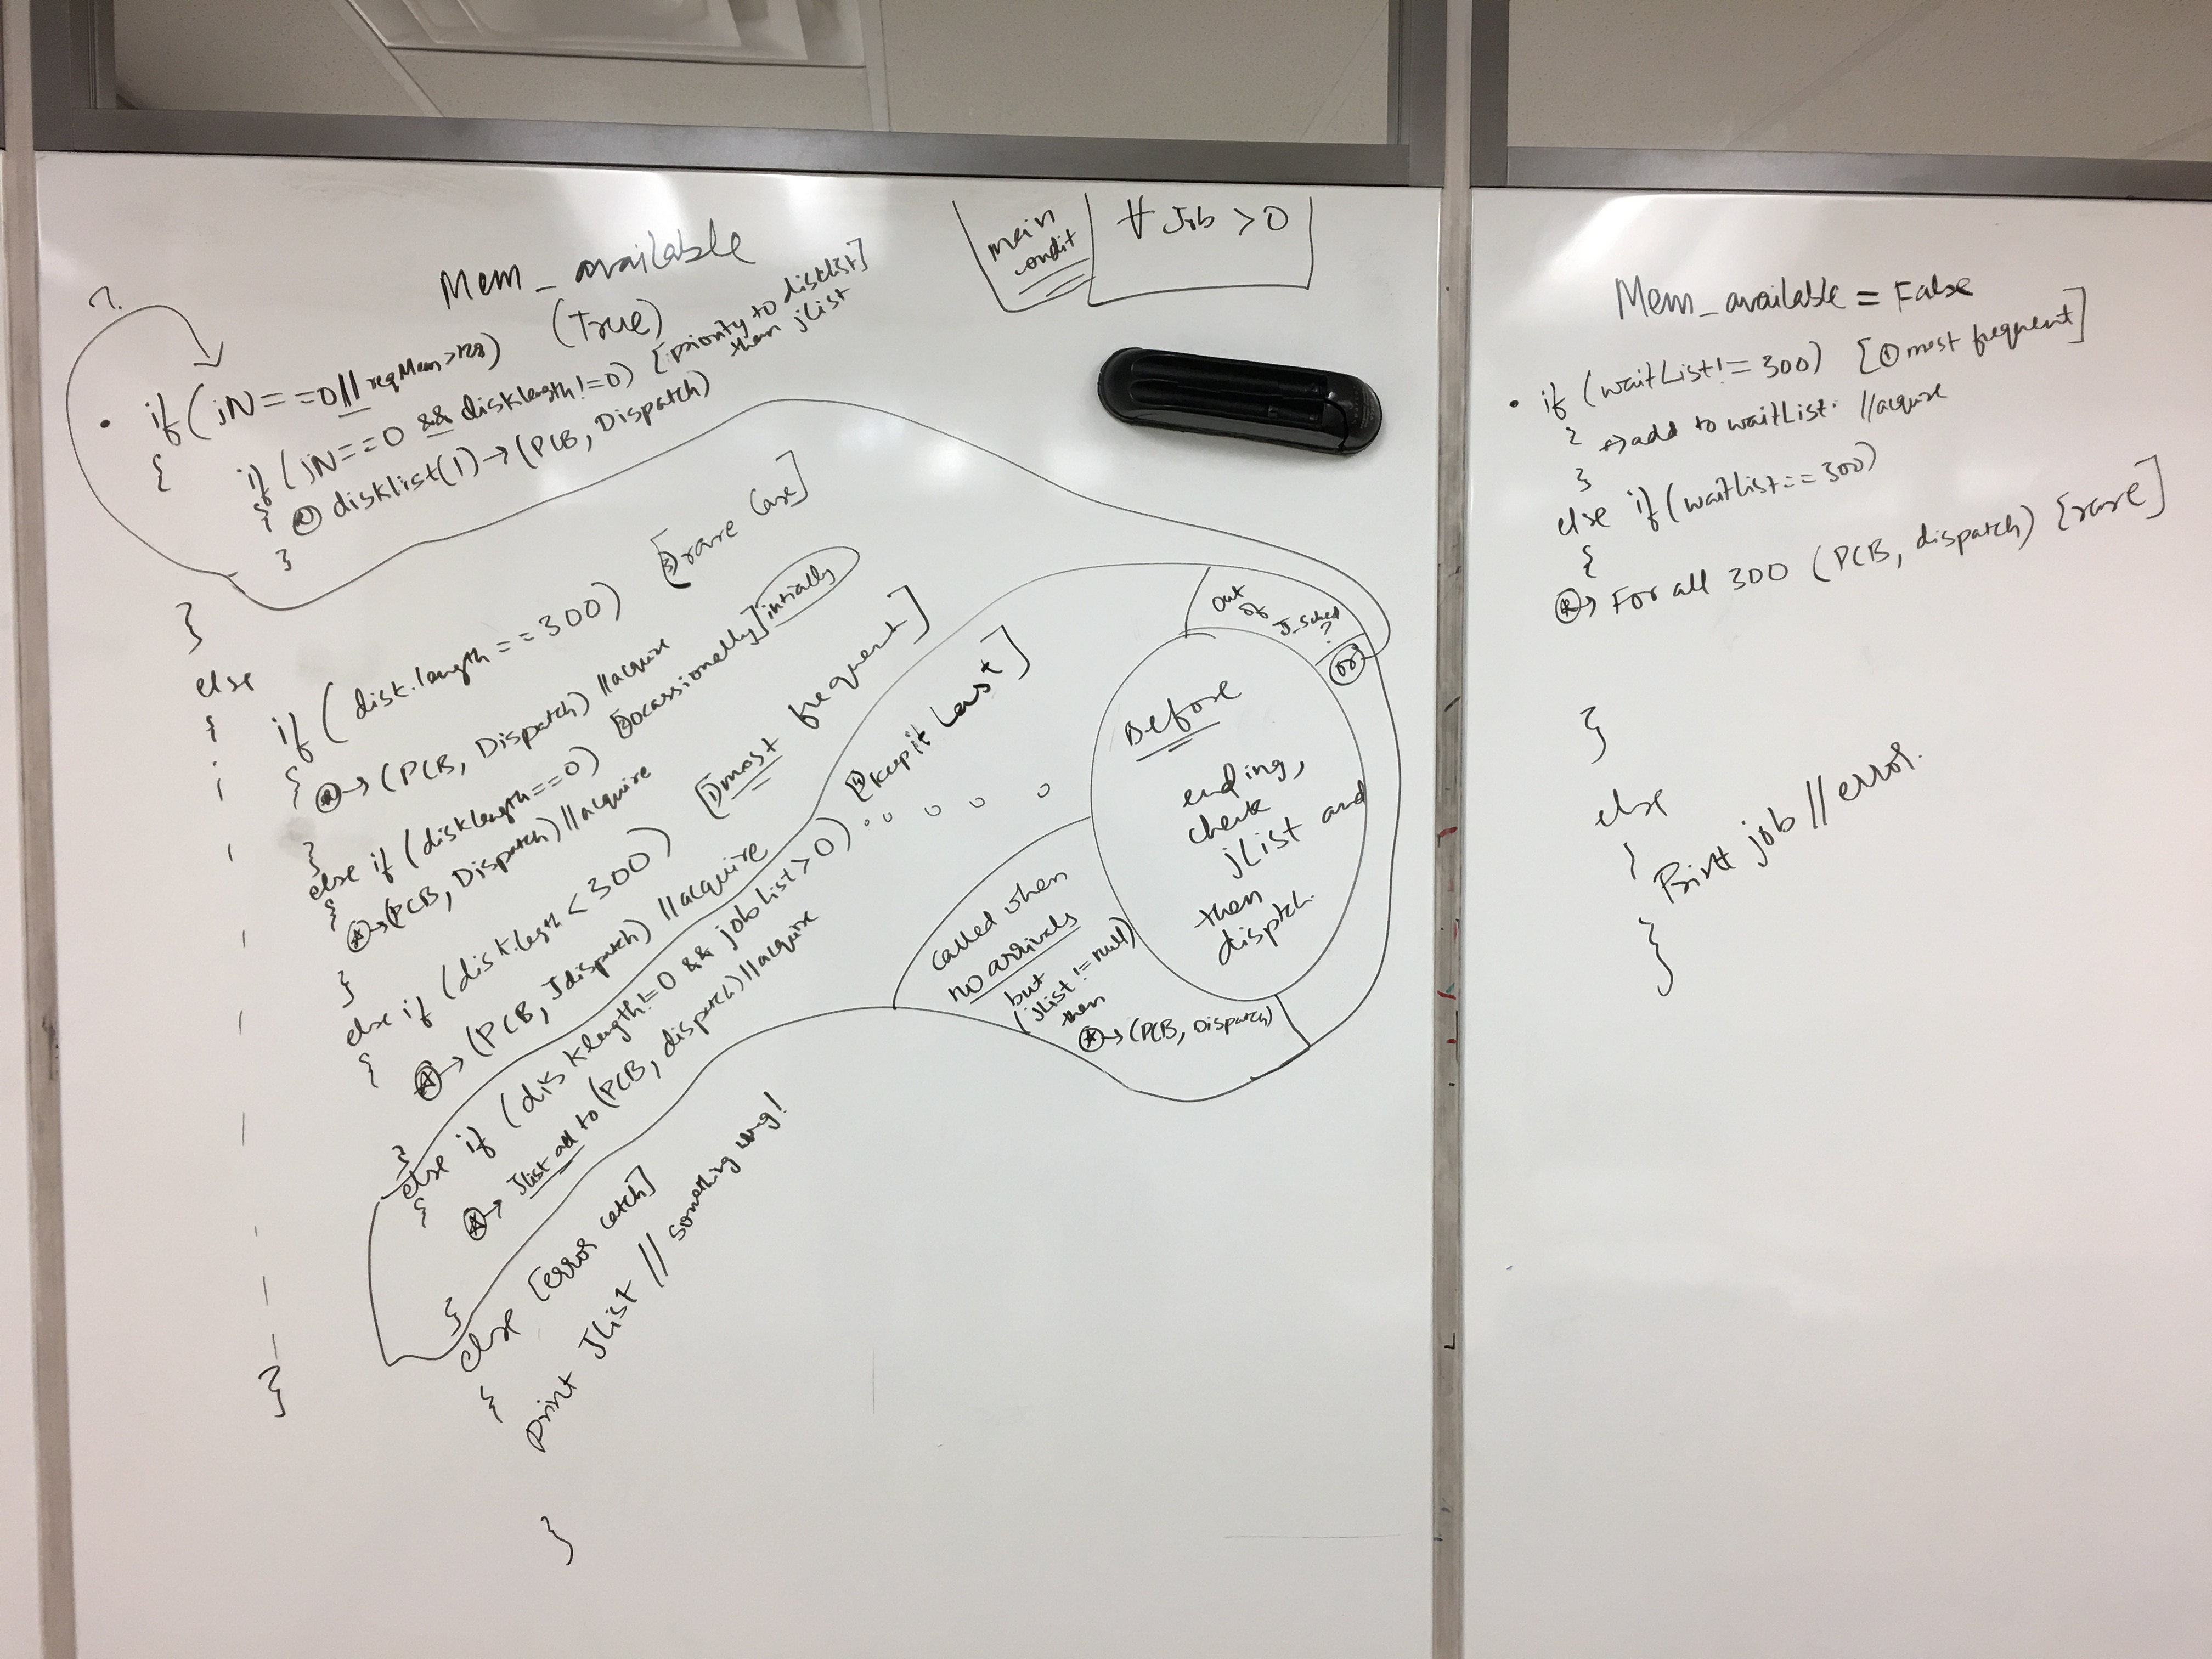 Mem_available
(True)
main
condit
∀ Job > 0
?
• if (jN==0 || reqMem>128)
{
if (jN==0 && disklength!=0) [priority to disklist]
then jList
{
disklist(1) → (PCB, Dispatch)
}
}
else
{
if (disk.length == 300) [③ rare case]
{
→ (PCB, Dispatch) //acquire
}
else if (disklength==0) [② ocassionally] intially
{
→ (PCB, Dispatch) //acquire
}
else if (disk.legth < 300) [① most frequent]
{
→ (PCB, Jdispatch) //acquire
}
else if (disklength!=0 && joblist>0) [④ keep it Last]
{
→ Jlist add to (PCB, dispatch) //acquire
}
else [error catch]
{
print Jlist // something wrong!
}
}
out
of
J_sched
?
(or)
Before
ending,
check
jList and
then
disptch.
called when
no arrivals
but
(jList != null)
then
→ (PCB, Dispatch)
Mem_available = False
• if (waitList != 300) [① most frequent]
{
→ add to waitList. //acquire
}
else if (waitlist == 300)
{
→ For all 300 (PCB, dispatch) [rare]
}
else
{
Print job // error.
}